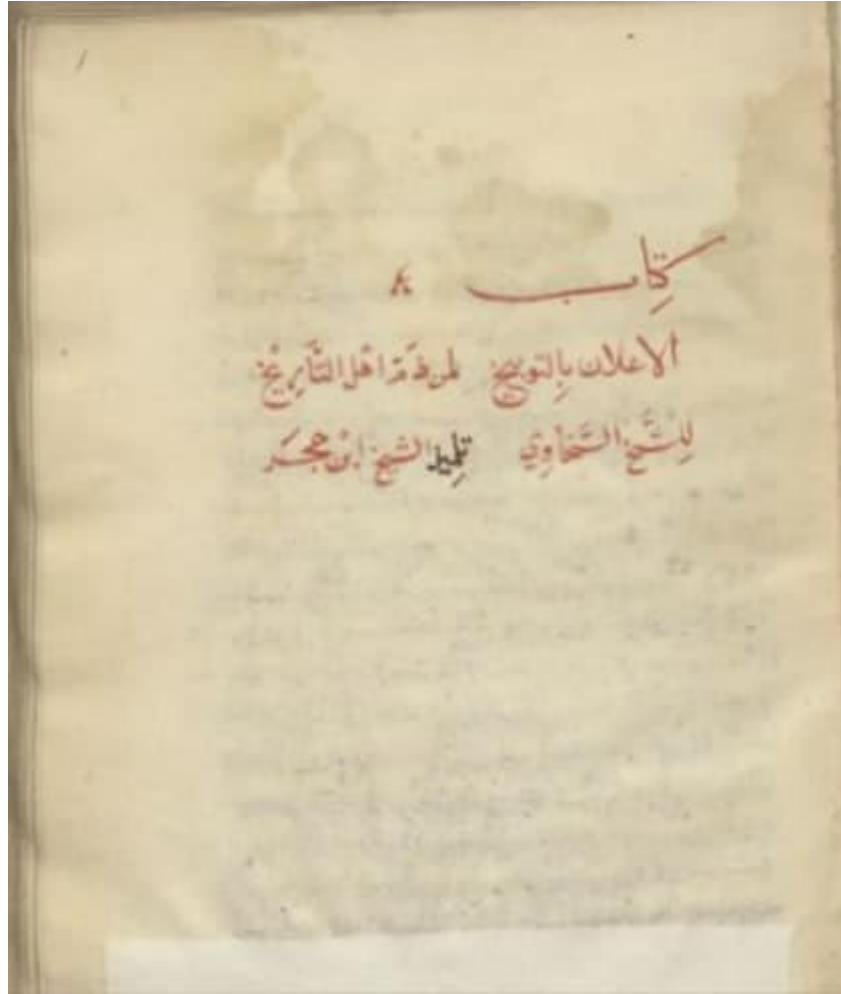 ١
كِتاب
الاعلان بِالتوبيخ لمن ذمّ اهل التَّأرِيْخ
لِلشَّيخ السَّخاوِي تلميذ الشيخ ابْن حجَر